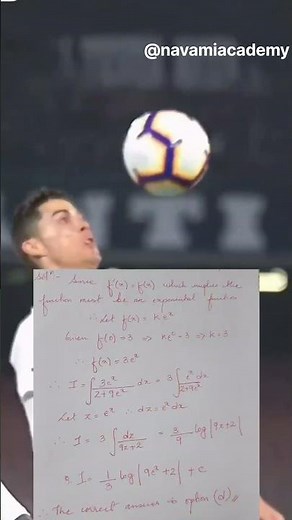 @navamiacademy
Solⁿ:- Since f'(x) = f(x) which implies the
function must be an exponential function
∴ Let f(x) = K eˣ
Given f(0) = 3 ⇒ Ke⁰ = 3 ⇒ K = 3
∴ f(x) = 3eˣ
∴ I = ∫ 3eˣ/(2+9eˣ) dx = 3 ∫ eˣ dx/(2+9eˣ)
Let z = eˣ ∴ dz = eˣ dx
∴ I = 3 ∫ dz/(9z+2) = 3/9 log |9z+2|
I = 1/3 log |9eˣ+2| + c
∴ The correct answer is option (d)